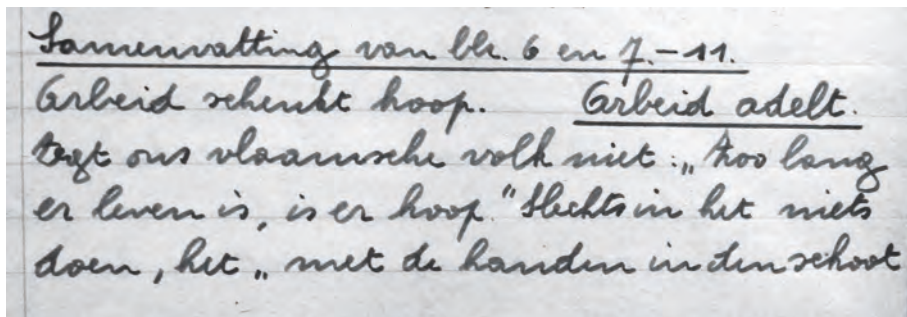 Samenvatting van blz. 6 en 7.-11.
Arbeid schenkt hoop. Arbeid adelt.
Zegt ons vlaamsche volk niet: „Zoo lang
er leven is, is er hoop." Slechts in het niets
doen, het „met de handen in den schoot